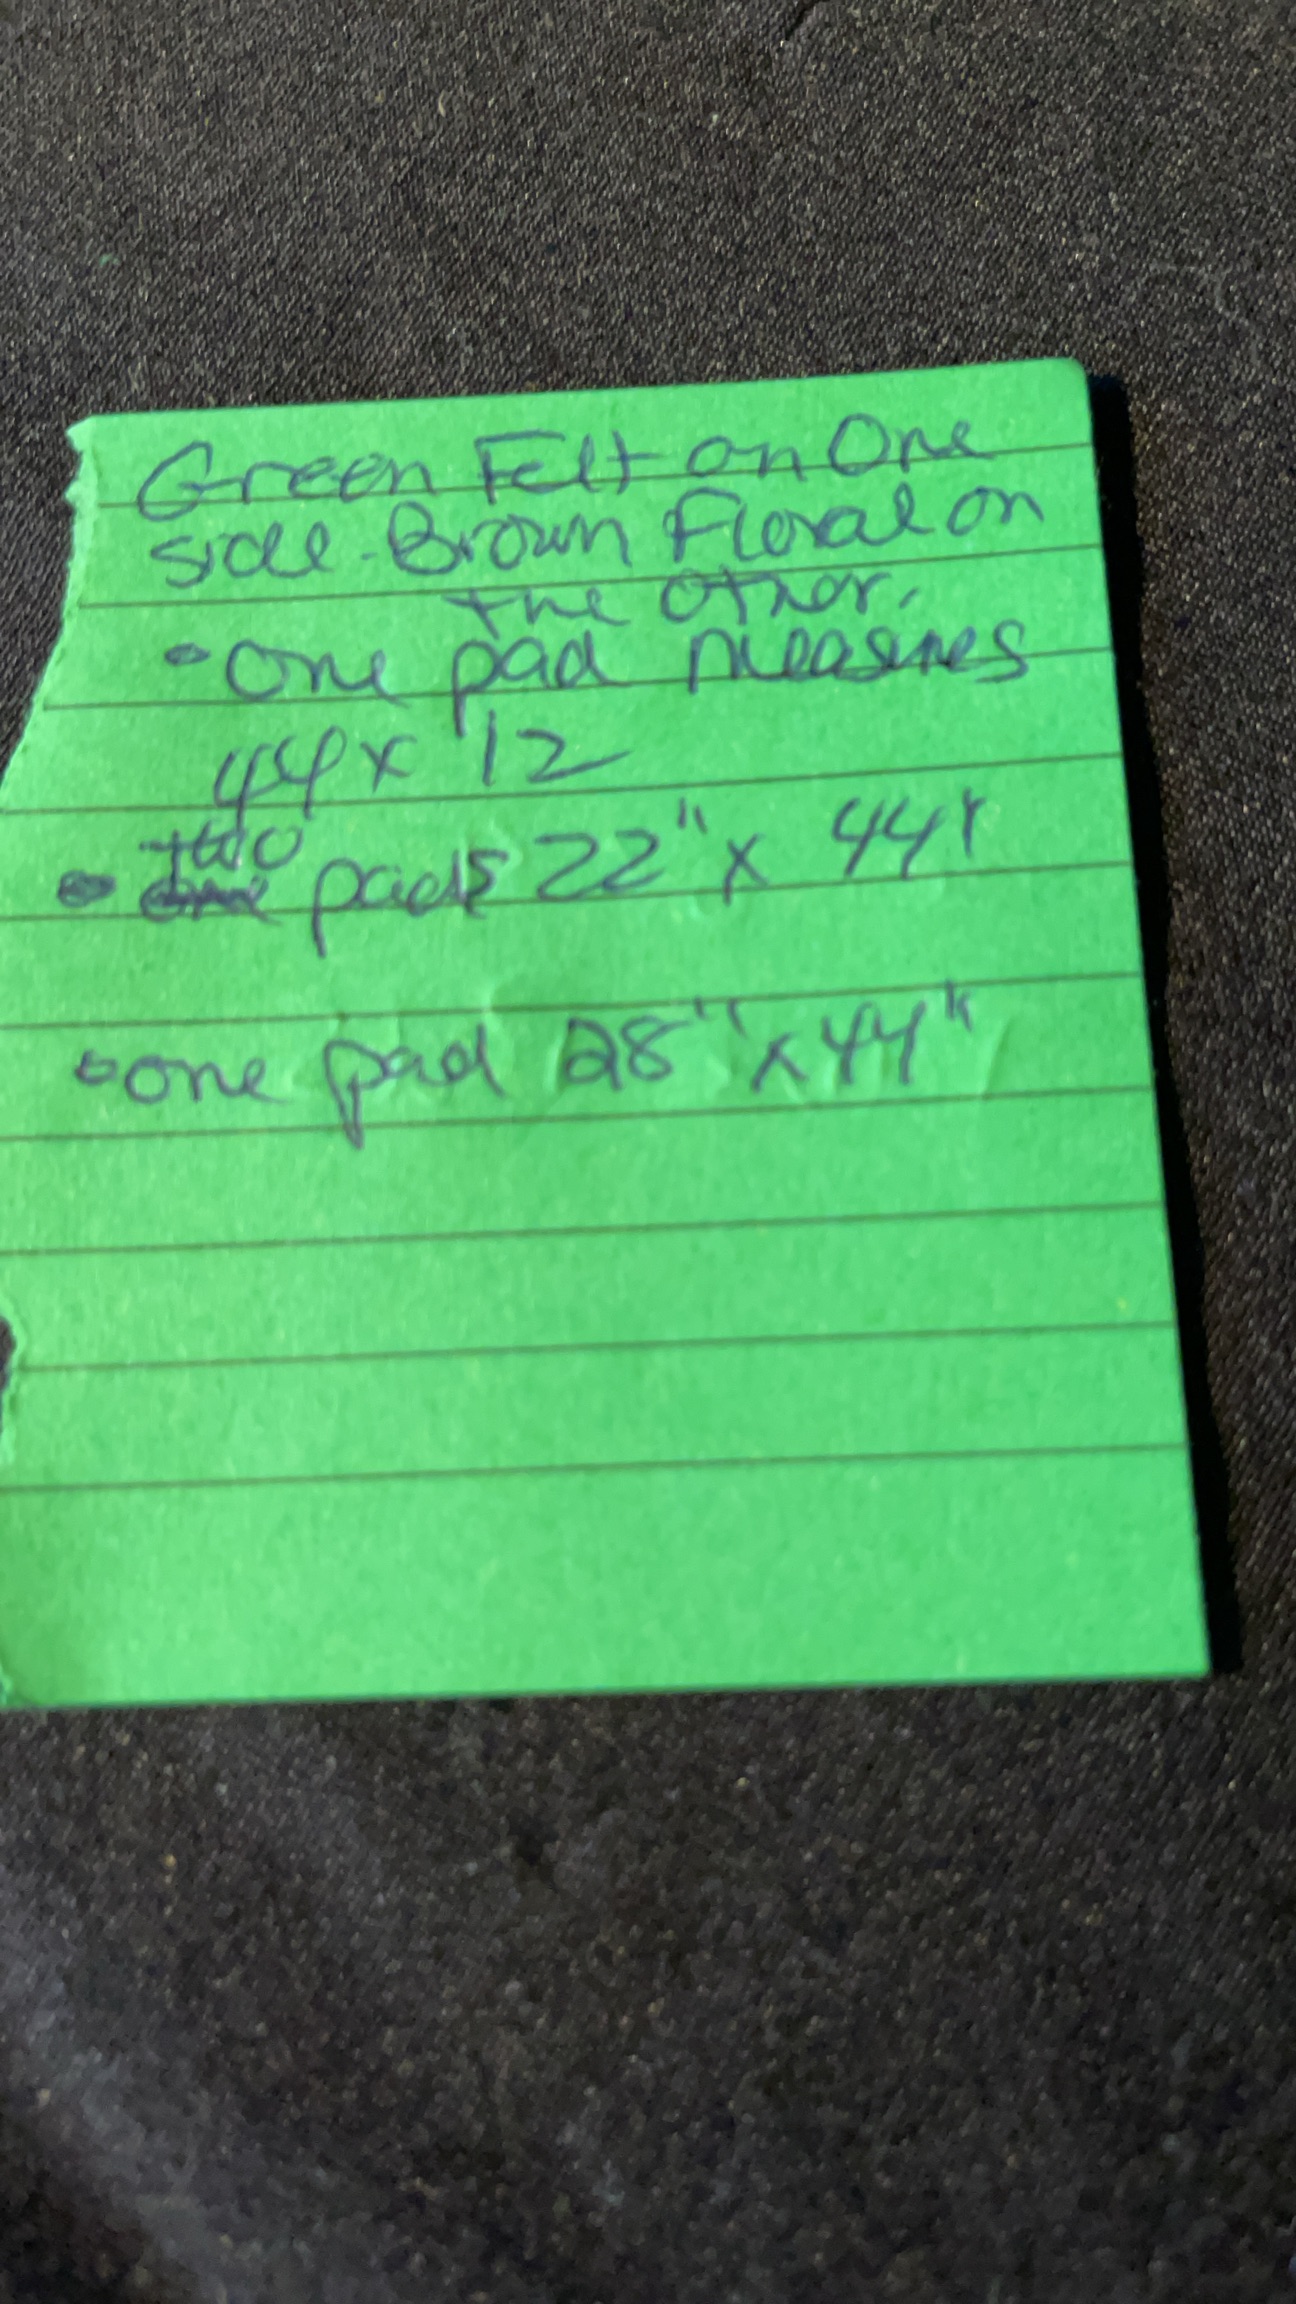 Green Felt on One
side - Brown Floral on
the other.
• One pad measures
44 x 12
two
• one pads 22" x 44"
• one pad 28" x 44"